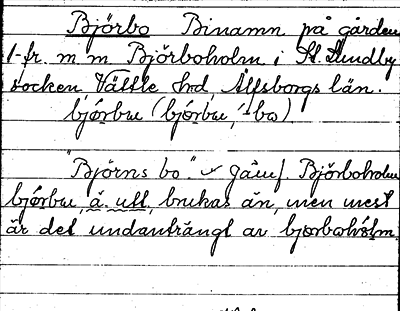 Björbo Binamn på gården
1 fr. m m Björboholm i St. Lundby
socken, Vättle hrd, Älfsborgs län.
bjǿrbu (bjǿrbu, -bo)
"Björns bo." Jämf. Björboholm
bjǿrbu, ä. utt, brukas än, men mest
är det undanträngt av bjørbohólm